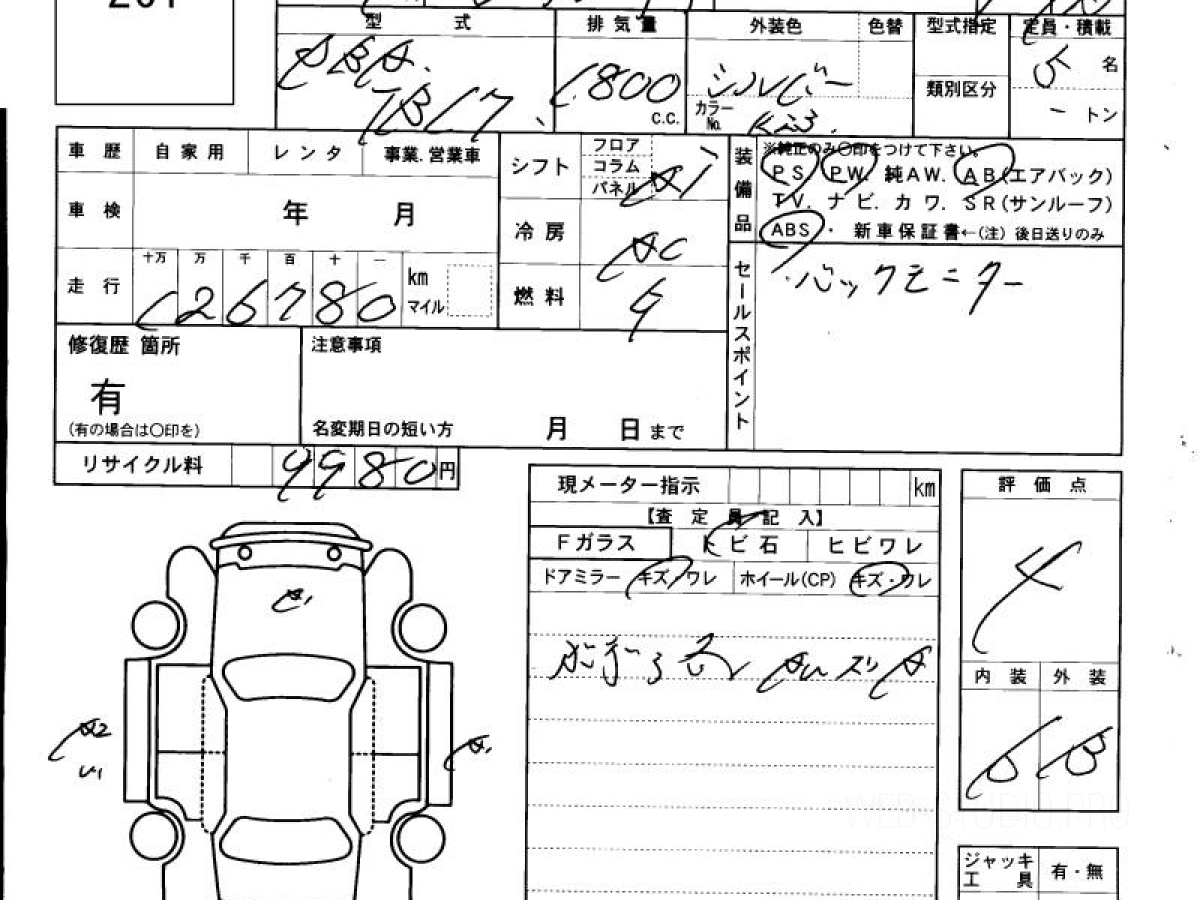 型 式 排気量 外装色 色替 型式指定 定員・積載
DBA. 1800 シルバー 5 名
類別区分
TB17 c.c. カラーNo. K23. ー トン
車歴 自家用 レンタ 事業.営業車
シフト フロア コラム パネル AT
装備品
※純正のみ〇印をつけて下さい。
PS PW 純AW. AB(エアバック)
TV. ナビ. カワ. SR(サンルーフ)
ABS ・ 新車保証書←(注) 後日送りのみ
車検 年 月
冷房 AC
走行 十万 万 千 百 十 一 km マイル
126780
燃料 G
セールスポイント
・バックモニター
修復歴 箇所
有
(有の場合は〇印を)
注意事項
名変期日の短い方 月 日 まで
リサイクル料 9980 円
現メーター指示 km
【査定員記入】
Fガラス トビ石 ヒビワレ
ドアミラー キズ/ワレ ホイール(CP) キズ・ワレ
評価点
4
内装 外装
B B
A1
A2
U1
A1
ジャッキ
工具 有・無
WEB-STUDIO.PRO